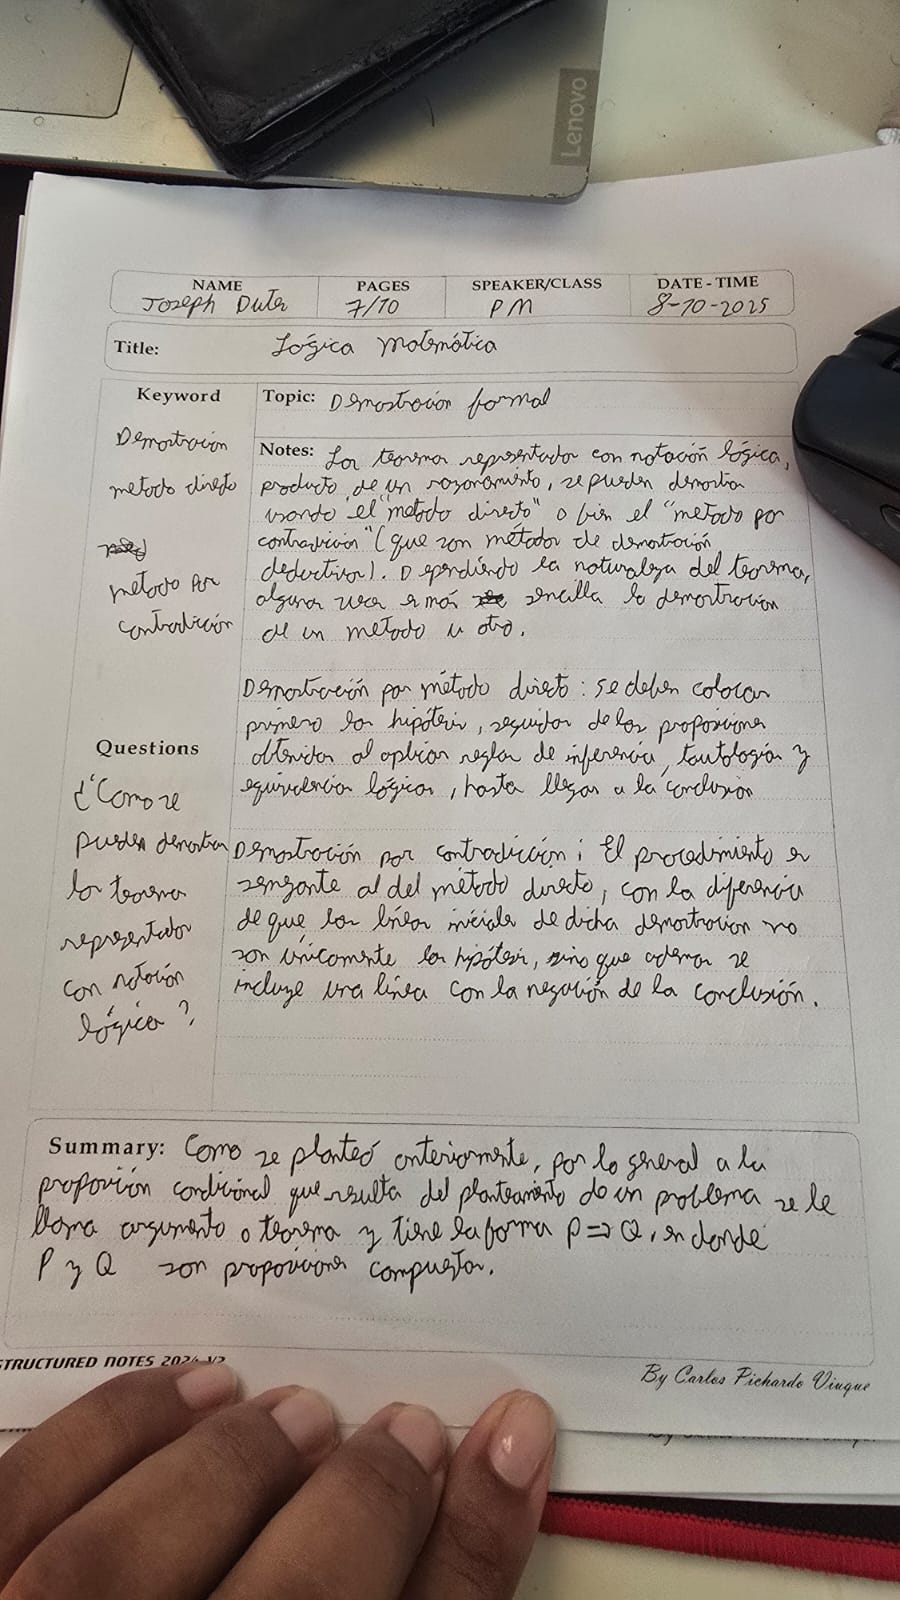 Lenovo
NAME PAGES SPEAKER/CLASS DATE - TIME
Joseph 7/10 PM 8-10-2025
Title: Lógica Matemática
Keyword
Demostracion
metodo directo
metodo por
contradicción
Questions
¿Como se
pueden demostrar
los teoremas
representados
con notación
lógica?
Topic: Demostración formal
Notes: Los teoremas representados con notación lógica,
producto de un razonamiento, se pueden demostrar
usando el "metodo directo" o bien el "metodo por
contradicción" (que son métodos de demostración
deductivos). Dependiendo la naturaleza del teorema,
algunas veces es más sencilla la demostración
de un metodo u otro.
Demostración por método directo: se deben colocar
primero las hipótesis, seguidas de las proposiciones
obtenidas al aplicar reglas de inferencia, tautologías y
equivalencias lógicas, hasta llegar a la conclusión
Demostración por contradicción: El procedimiento es
semejante al del método directo, con la diferencia
de que las líneas iniciales de dicha demostracion no
son únicamente las hipótesis, sino que ademas se
incluye una línea con la negación de la conclusión.
Summary: Como se planteó anteriormente, por lo general a la
proposición condicional que resulta del planteamiento de un problema se le
llama argumento o teorema y tiene la forma P⇒Q, en donde
P y Q son proposiciones compuestas.
STRUCTURED NOTES 2024 V2
By Carlos Pichardo Viuque